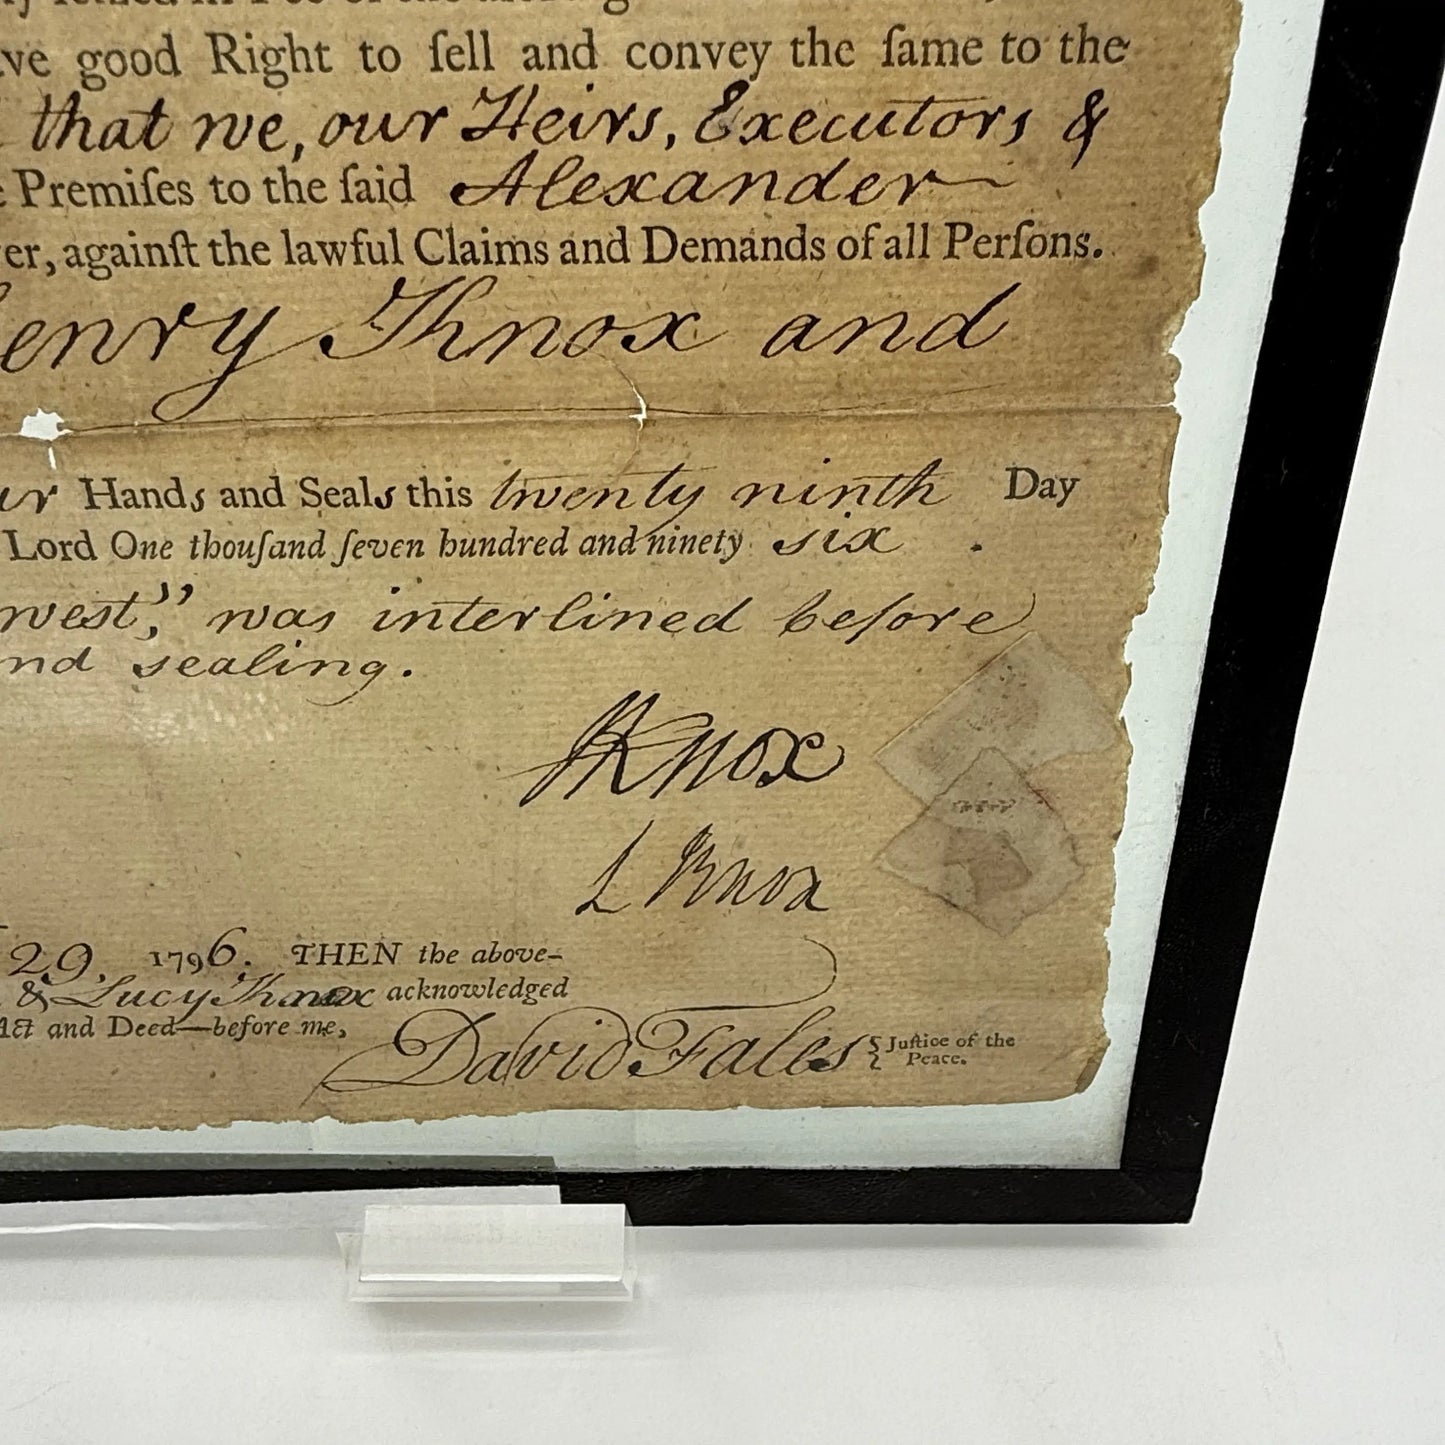 ve good Right to ſell and convey the ſame to the
that we, our Heirs, Executors &
Premiſes to the ſaid Alexander
er, againſt the lawful Claims and Demands of all Perſons.
enry Knox and
ur Hands and Seals this twenty ninth Day
Lord One thouſand ſeven hundred and ninety six .
west," was interlined before
nd sealing.
HKnox
L Knox
29, 1796. THEN the above-
& Lucy Knox acknowledged
Act and Deed—before me,
David Fales { Juſtice of the
Peace.